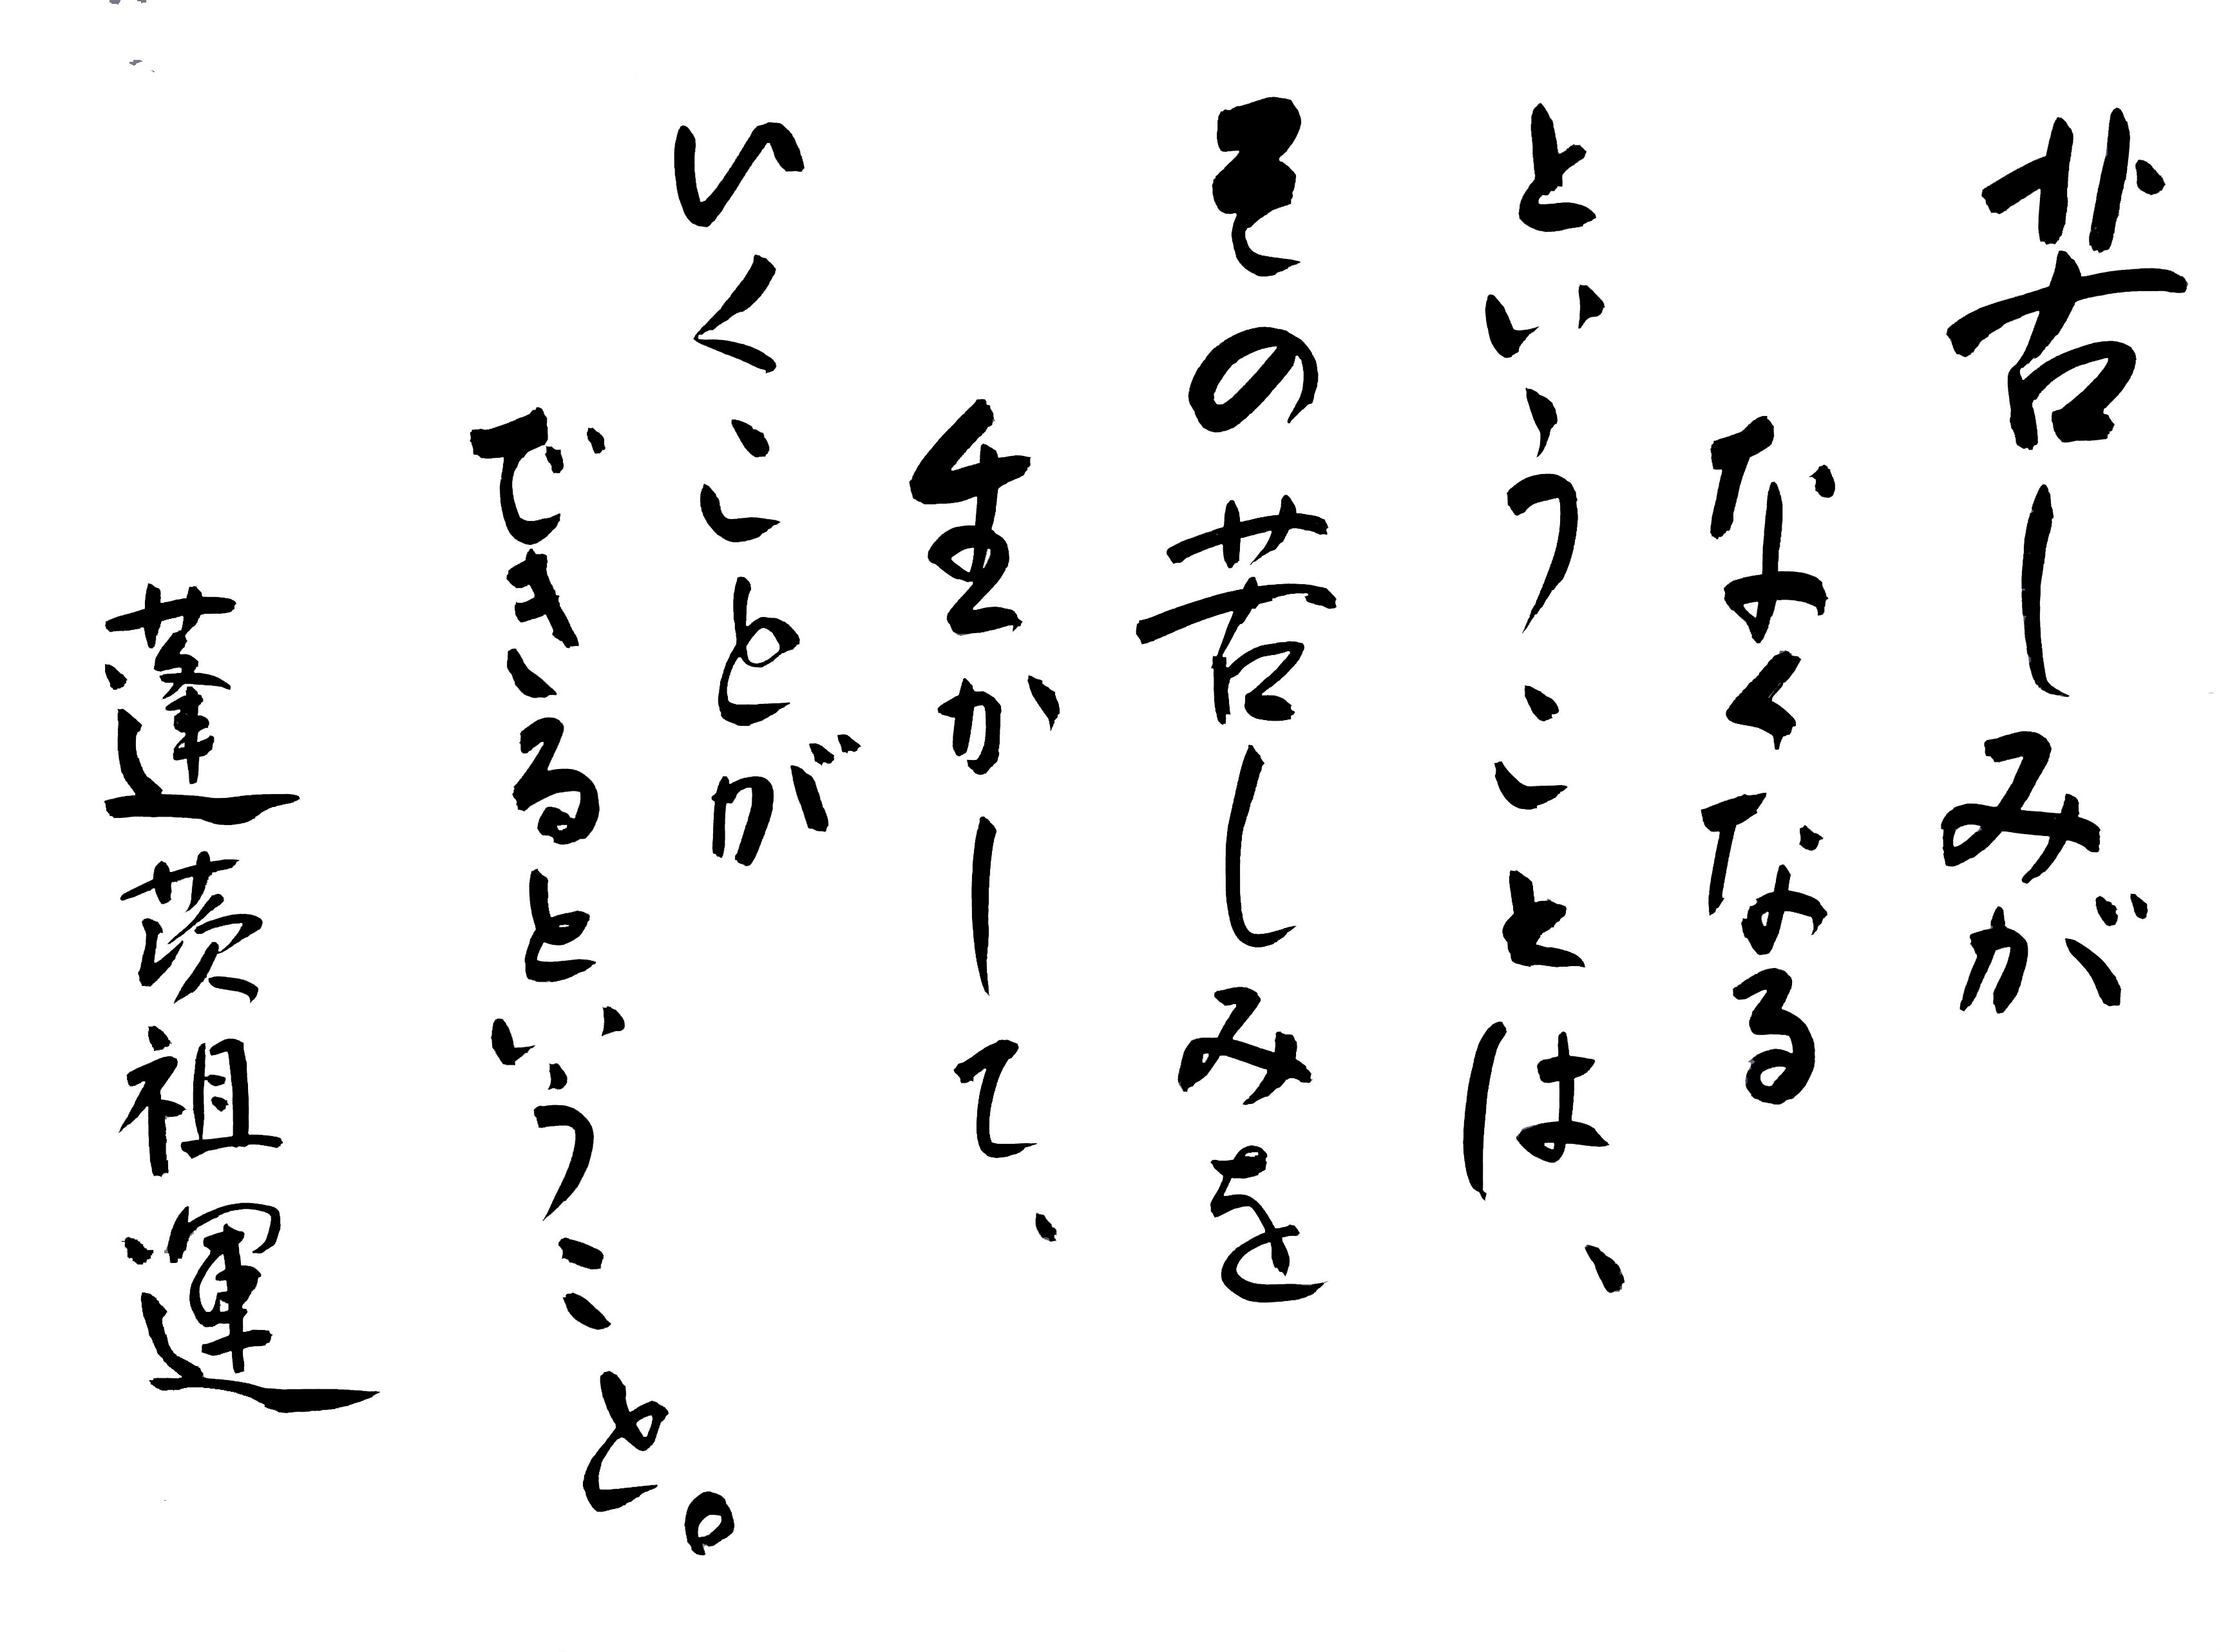 苦しみが
なくなる
ということは、
その苦しみを
生かして、
いくことが
できるということ。
蓮茨祖運